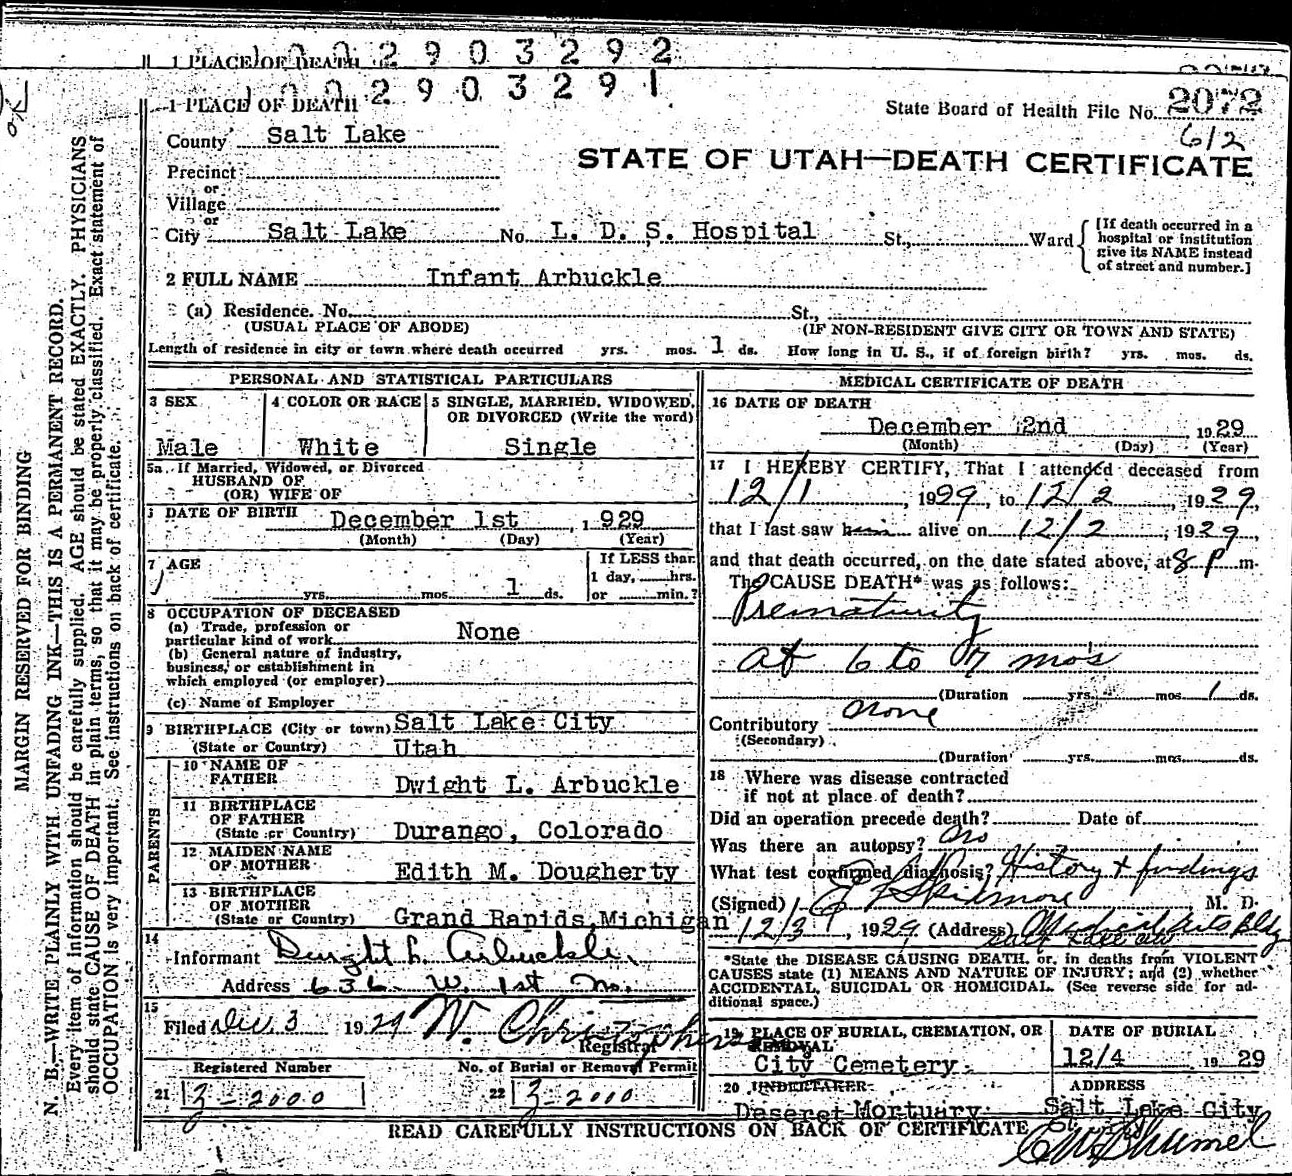 1 PLACE OF DEATH 2903292
1 PLACE OF DEATH 2903291
State Board of Health File No. 2072
612
County Salt Lake
STATE OF UTAH—DEATH CERTIFICATE
Precinct
or
Village
or
City Salt Lake No. L. D. S. Hospital St., Ward
[If death occurred in a
hospital or institution
give its NAME instead
of street and number.]
2 FULL NAME Infant Arbuckle
(a) Residence. No. St.,
(USUAL PLACE OF ABODE) (IF NON-RESIDENT GIVE CITY OR TOWN AND STATE)
Length of residence in city or town where death occurred yrs. mos. 1 ds. How long in U. S., if of foreign birth? yrs. mos. ds.
PERSONAL AND STATISTICAL PARTICULARS
3 SEX
Male
4 COLOR OR RACE
White
5 SINGLE, MARRIED, WIDOWED,
OR DIVORCED (Write the word)
Single
5a If Married, Widowed, or Divorced
HUSBAND OF
(OR) WIFE OF
DATE OF BIRTH December 1st, 1929
(Month) (Day) (Year)
7 AGE
yrs. mos. 1 ds.
If LESS than
1 day, hrs.
or min.?
8 OCCUPATION OF DECEASED
(a) Trade, profession or
particular kind of work None
(b) General nature of industry,
business, or establishment in
which employed (or employer)
(c) Name of Employer
9 BIRTHPLACE (City or town) Salt Lake City
(State or Country) Utah
PARENTS
10 NAME OF
FATHER Dwight L. Arbuckle
11 BIRTHPLACE
OF FATHER
(State or Country) Durango, Colorado
12 MAIDEN NAME
OF MOTHER Edith M. Dougherty
13 BIRTHPLACE
OF MOTHER
(State or Country) Grand Rapids, Michigan
14
Informant Dwight L. Arbuckle
Address 636 W. 1st No.
15
Filed Dec. 3 1929 W. Christopherson
Registrar
Registered Number
21 3-2000
No. of Burial or Removal Permit
22 3-2000
MEDICAL CERTIFICATE OF DEATH
16 DATE OF DEATH
December 2nd 1929
(Month) (Day) (Year)
17 I HEREBY CERTIFY, That I attended deceased from
12/1, 1929, to 12/2, 1929,
that I last saw him alive on 12/2, 1929,
and that death occurred, on the date stated above, at 8 P m.
The CAUSE DEATH* was as follows:
Prematurity
at 6 to 7 mos
(Duration yrs. mos. 1 ds.
Contributory None
(Secondary)
(Duration yrs. mos. ds.
18 Where was disease contracted
if not at place of death?
Did an operation precede death? Date of
Was there an autopsy? No
What test confirmed diagnosis? History + findings
(Signed) E F Skidmore M. D.
12/3, 1929 (Address) Medical Arts Bldg
Salt Lake
*State the DISEASE CAUSING DEATH, or, in deaths from VIOLENT
CAUSES state (1) MEANS AND NATURE OF INJURY; and (2) whether
ACCIDENTAL, SUICIDAL OR HOMICIDAL. (See reverse side for ad-
ditional space.)
19 PLACE OF BURIAL, CREMATION, OR
REMOVAL
City Cemetery
DATE OF BURIAL
12/4 1929
20 UNDERTAKER
Deseret Mortuary
ADDRESS
Salt Lake City
READ CAREFULLY INSTRUCTIONS ON BACK OF CERTIFICATE
MARGIN RESERVED FOR BINDING
N. B.—WRITE PLAINLY WITH UNFADING INK—THIS IS A PERMANENT RECORD.
Every item of information should be carefully supplied. AGE should be stated EXACTLY. PHYSICIANS
should state CAUSE OF DEATH in plain terms, so that it may be properly classified. Exact statement of
OCCUPATION is very important. See instructions on back of certificate.